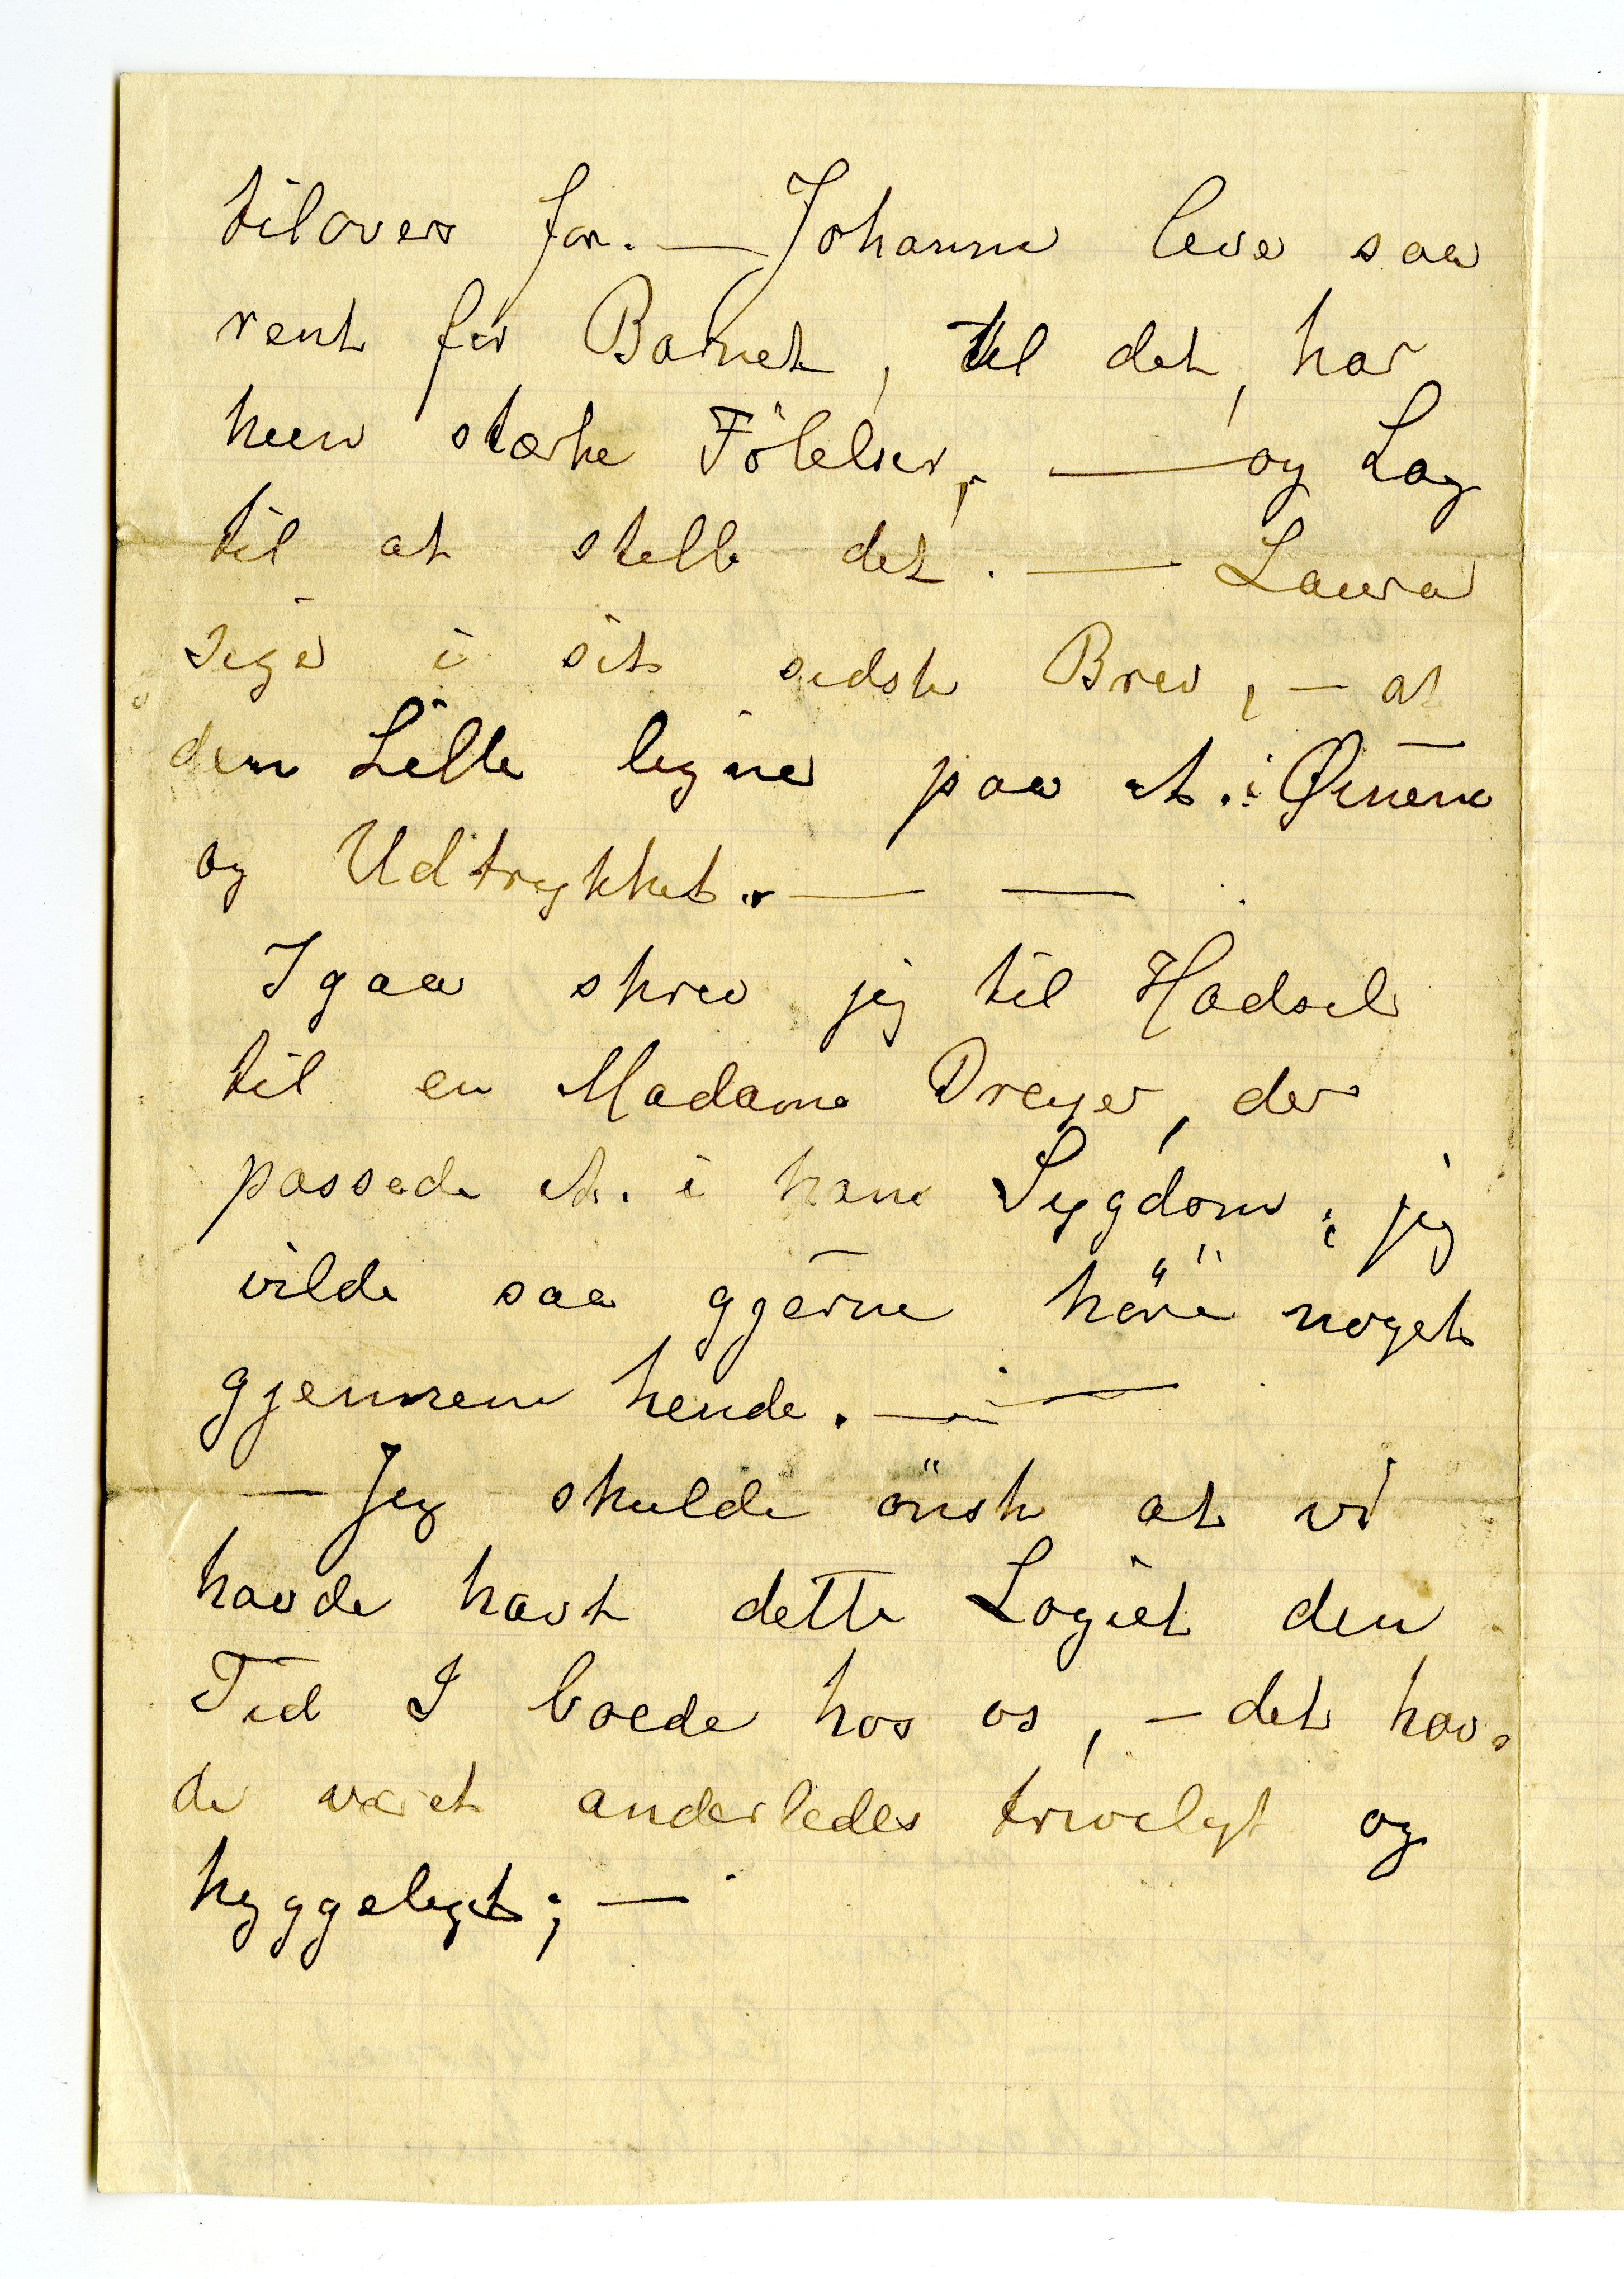 tilovers for. — Johanne lever saa
rent for Barnet, til det, har
hun stærke Fölelser, — og Lag
til at stelle det. — Laura
siger i sit sidste Brev, — at
den Lille ligner paa A. i Øinene
og Udtrykket. — —
Igaar skrev jeg til Hadsel
til en Madame Dreyer, der
passede A. i hans Sygdom; jeg
vilde saa gjerne höre noget
gjennem hende. — —
— Jeg skulde önske at vi
havde havt dette Logiet den
Tid I boede hos os, — det hav-
de været anderledes triveligt og
hyggeligt; —